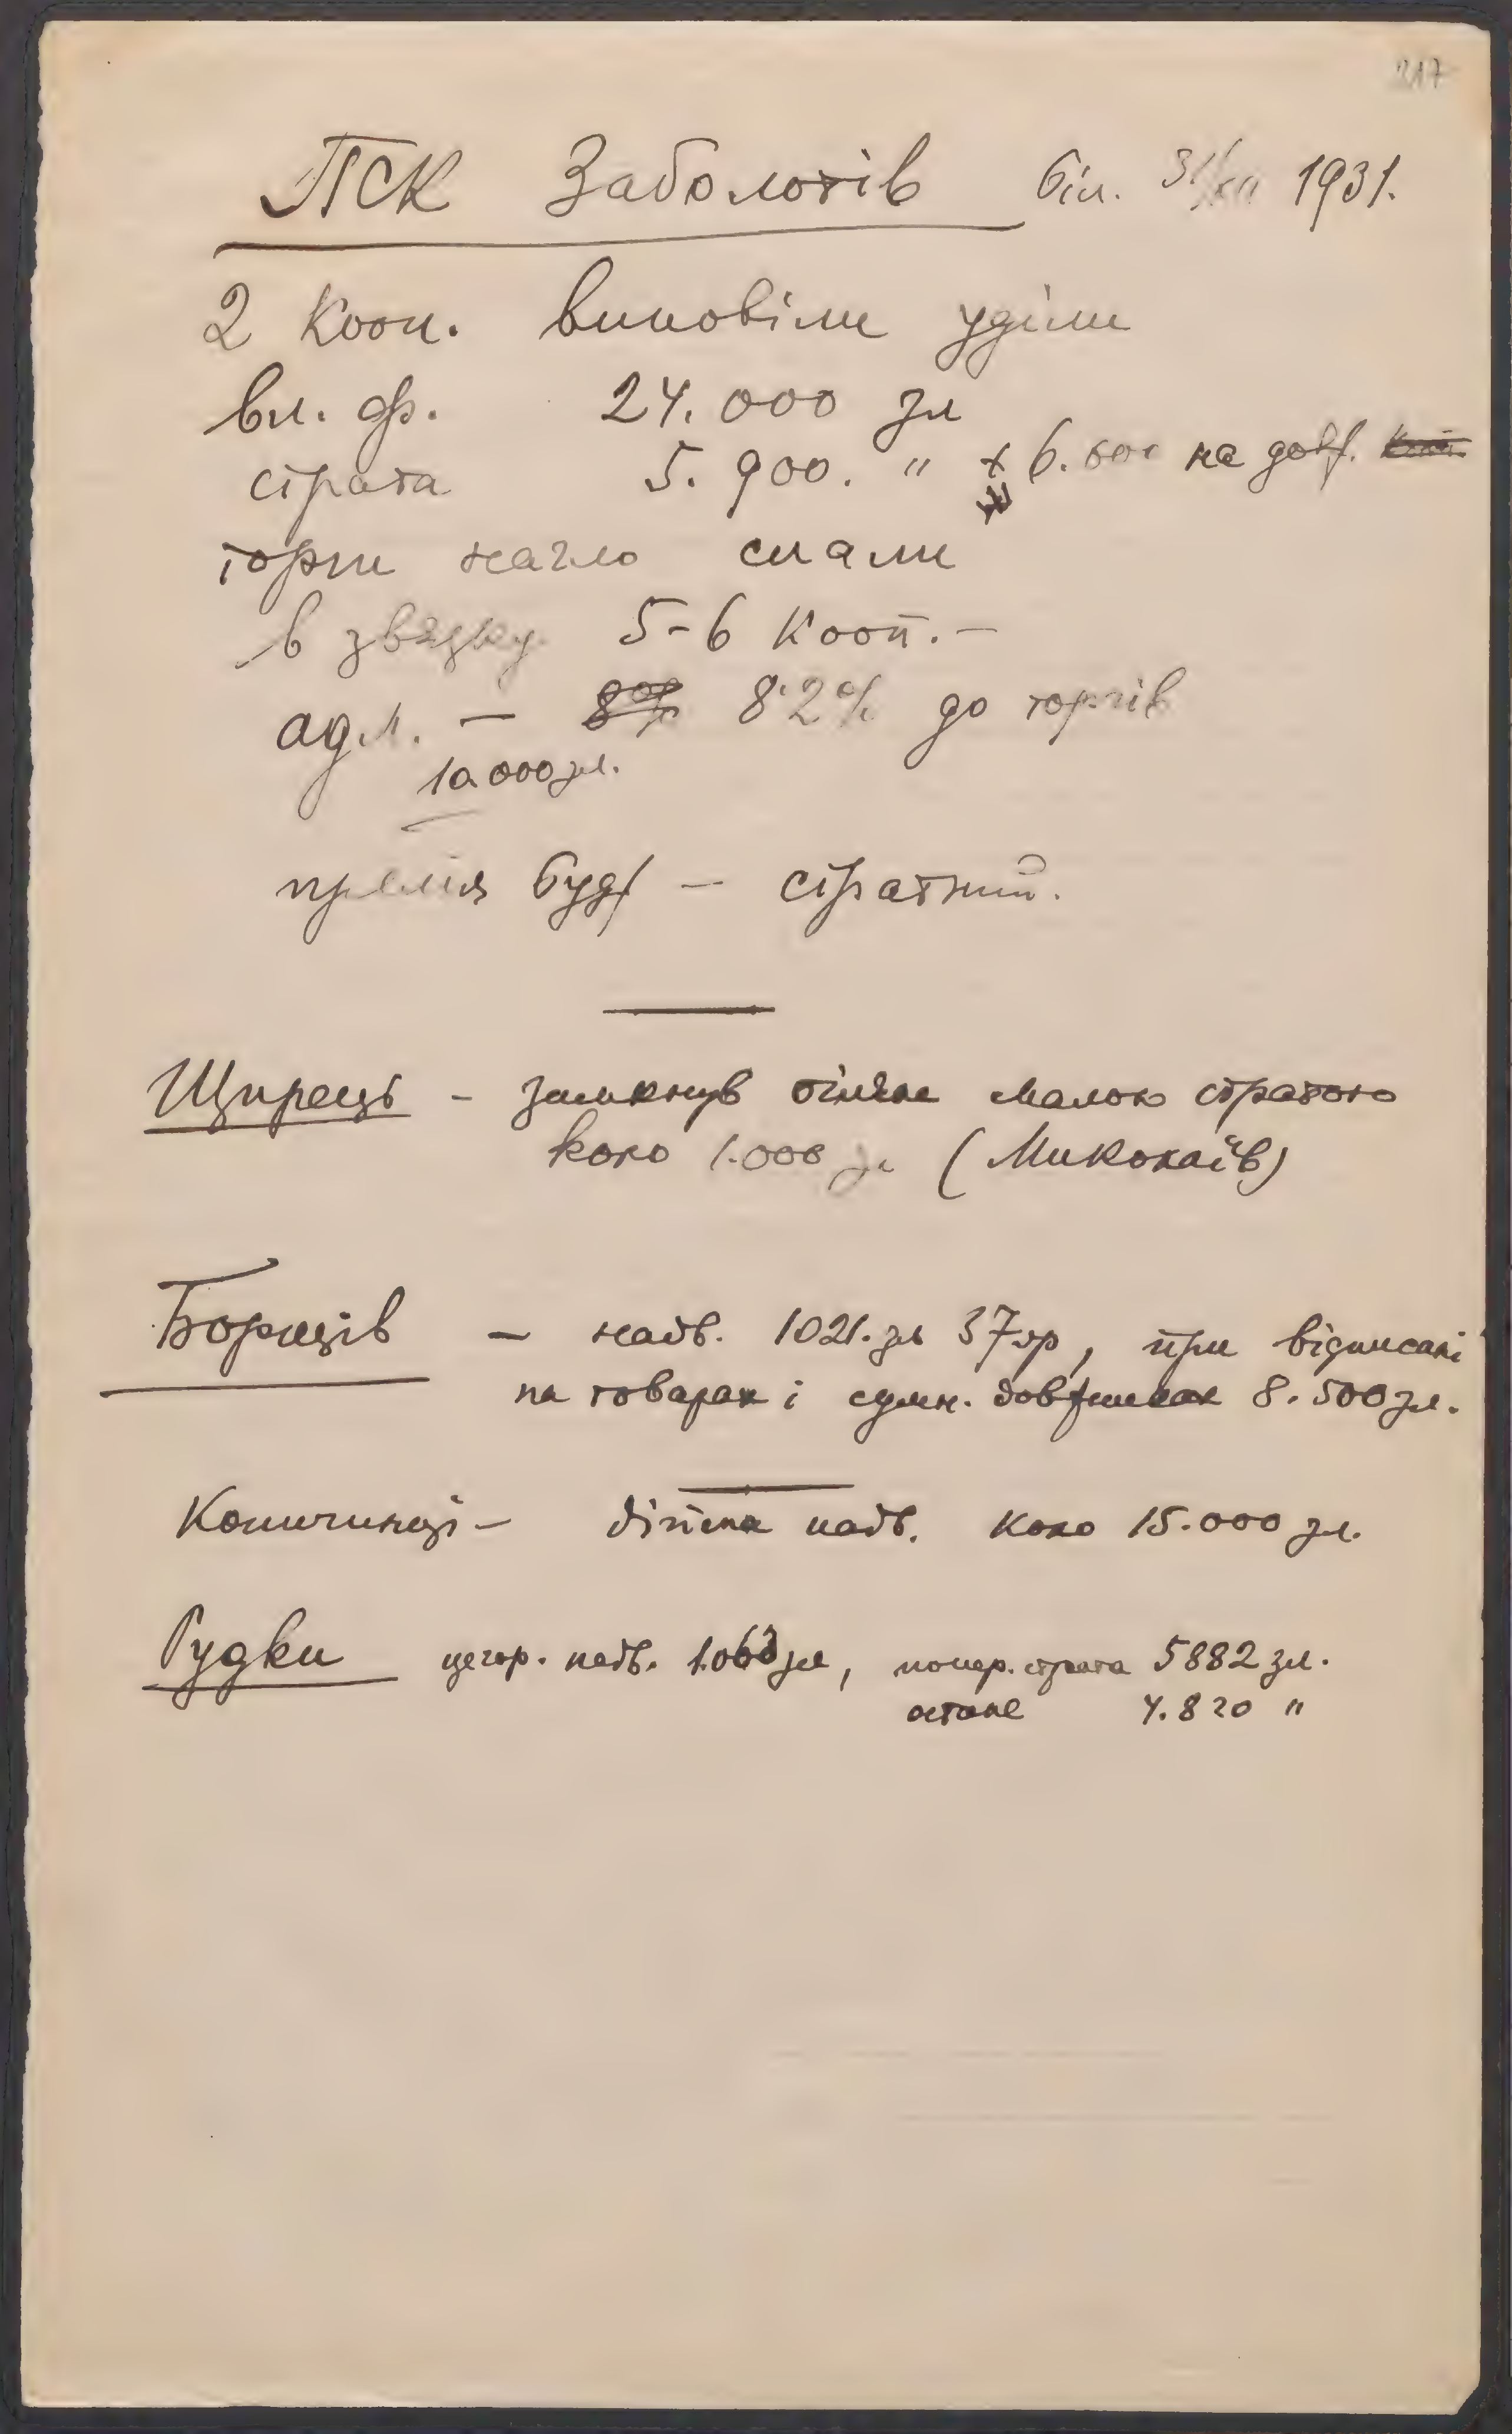 217
ПСК Заболотів біл. 31/XII 1931.
2 Кооп. виповіли уділи
вл. ф. 24.000 зл
страта 5.900. " + 6.600 на довж.
торги нагло спали
в звязку 5-6 Кооп. –
адм. – 8% 8.2% до торгів
10.000 зл.
премія буд – стратний.
Щирець – замкнув білянс малою стратою
коло 1.000 зл (Миколаїв)
Борщів – надв. 1021. зл 37 гр, при відписані
на товарах і сумн. довжниках 8.500 зл.
Копичинці – дійсна надв. коло 15.000 зл.
Рудки цегор. надв. 1.063 зл, попер. страта 5882 зл.
остане 4.820 "